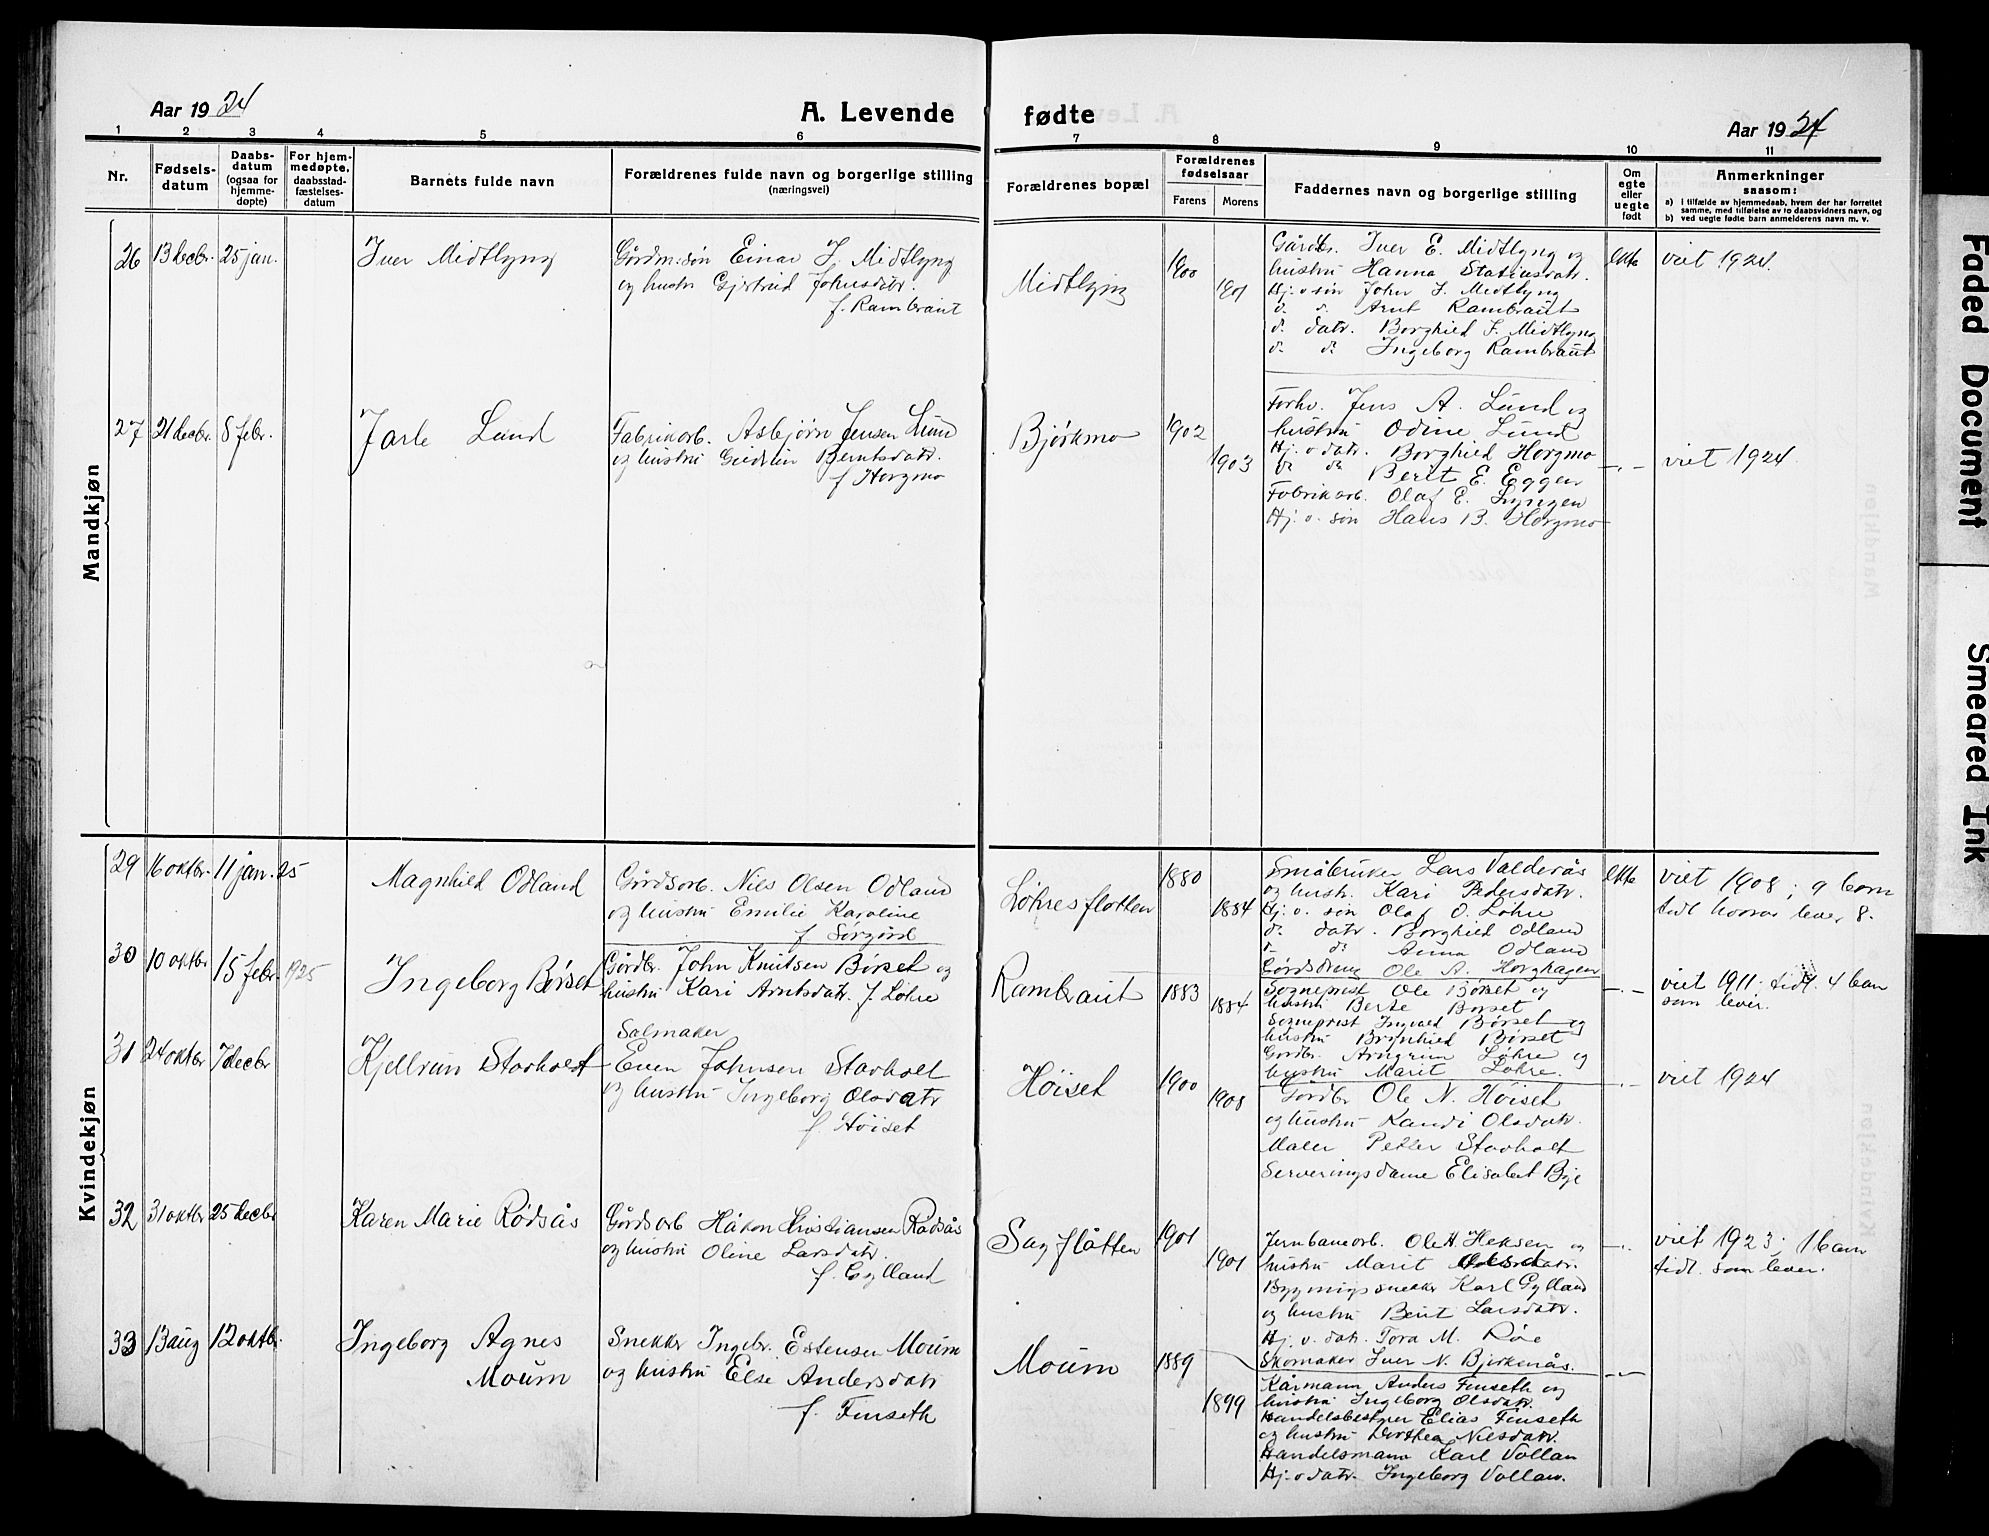 Aar 1924
A. Levende
fødte
Aar 1924
1 2 3 4 5 6 7 8 9 10 11
Nr.
Fødsels-
datum
Daabs-
datum
(ogsaa for
hjemme-
døpte)
For hjem-
medøpte,
daabsstad-
fæstelses-
datum
Barnets fulde navn
Forældrenes fulde navn og borgerlige stilling
(næringsvei)
Forældrenes bopæl
Forældrenes
fødselsaar
Farens Morens
Faddernes navn og borgerlige stilling
Om
egte
eller
uegte
født
Anmerkninger
saasom:
a) i tilfælde av hjemmedaab, hvem der har forrettet
samme, med tilføielse av to daabsvidners navn, og
b) ved uegte fødte barn anmelderens navn m. v.
Mandkjøn
26 13 decbr. 25 jan.
Iver Midtlyng
Gårdm.søn Einar I. Midtlyng
og hustr Gjertrud Johnsdatr.
f. Rambraut
Midtlyng
1900
1901
Gårdbr. Iver E. Midtlyng og
hustru Hanna Statiusdatr.
Hj. o søn John I. Midtlyng
d. d. Arnt Rambraut
d. datr. Borghild I. Midtlyng
d. d. Ingeborg Rambraut
ekte
viet 1924.
27 21 decbr. 8 febr.
Jarle Lund
Fabrikarb. Asbjørn Jensen Lund
og hustru Gudrun Berntsdatr.
f. Horgmo
Bjørkmo
1902
1903
Forhv. Jens A. Lund og
hustru Odine Lund
Hj. o datr. Borghild Horgmo
d. d. Berit E. Eggen
Fabrikarb. Olaf E. Lyngen
Hj. o. søn Hans B. Horgmo
-„-
viet 1924.
Kvindekjøn
29 16 oktbr. 11 jan. 25
Magnhild Odland
Gårdsarb. Nils Olsen Odland
og hustru Emilie Karoline
f Sørgård
Løhresflotten
1880
1884
Småbruker Lars Valderås
og hustr. Kari Pedersdatr.
Hj. o. søn Olaf O. Løhre
d. datr. Borghild Odland
d. d. Anna Odland
Gårdsdreng Ole A. Horghagen
ekte
viet 1908; 9 barn
tidl. hvorav lever 8.
30 10 oktbr 15 febr 1925
Ingeborg Børset
Gårdbr. John Knutsen Børset og
hustru Kari Arntsdatr. f. Løhre
Rambraut
1883
1884
Sogneprest Ole Børset og
hustru Berte Børset
Sogneprest Ingvald Børset og
hustru Brynhild Børset
Gårdbr. Arngrim Løhre og
hustru Marit Løhre.
-„-
viet 1911. tidl. 4 barn
som lever.
31 24 oktbr 7 decbr
Kjellrun Stavholt
Salmaker
Even Johnsen Stavholt
og hustru Ingeborg Olsdatr
f. Høiset
Høiset
1900
1908
Gårdbr Ole N. Høiset
og hustru Randi Olsdatr.
Maler Petter Stavholt
Serveringsdame Elisabet Bye
-„-
viet 1924
32 31 oktbr 25 decbr
Karen Marie Rødsås
Gårdsarb Håkon Kristiansen Rødsås
og hustru Oline Larsdatr.
f. Gylland
Sagflåtten
1901
1901
Jernbanearb. Ole H. Heksen og
hustru Marit
Bygningssnekker Karl Gylland
og hustru Berit Larsdatr.
Hj. o. datr. Tora M. Røe
Skomaker Iver N. Bjerkenås.
-„-
viet 1923; 1 barn
tidl. som lever.
33 13 aug 12 oktbr.
Ingeborg Agnes
Moum
Snekker Ingebr. Estensen Moum
og hustru Else Andersdatr
f. Finseth
Moum
1889
1899
Kårmann Anders Finseth og
hustru Ingeborg Olsdatr.
Handelsbestyrer Elias Finseth
og hustru Dorthea Nilsdatr.
Handelsmann Karl Vollan
Hj. o datr. Ingeborg Vollan.
-„-
Faded Document
Smeared Ink